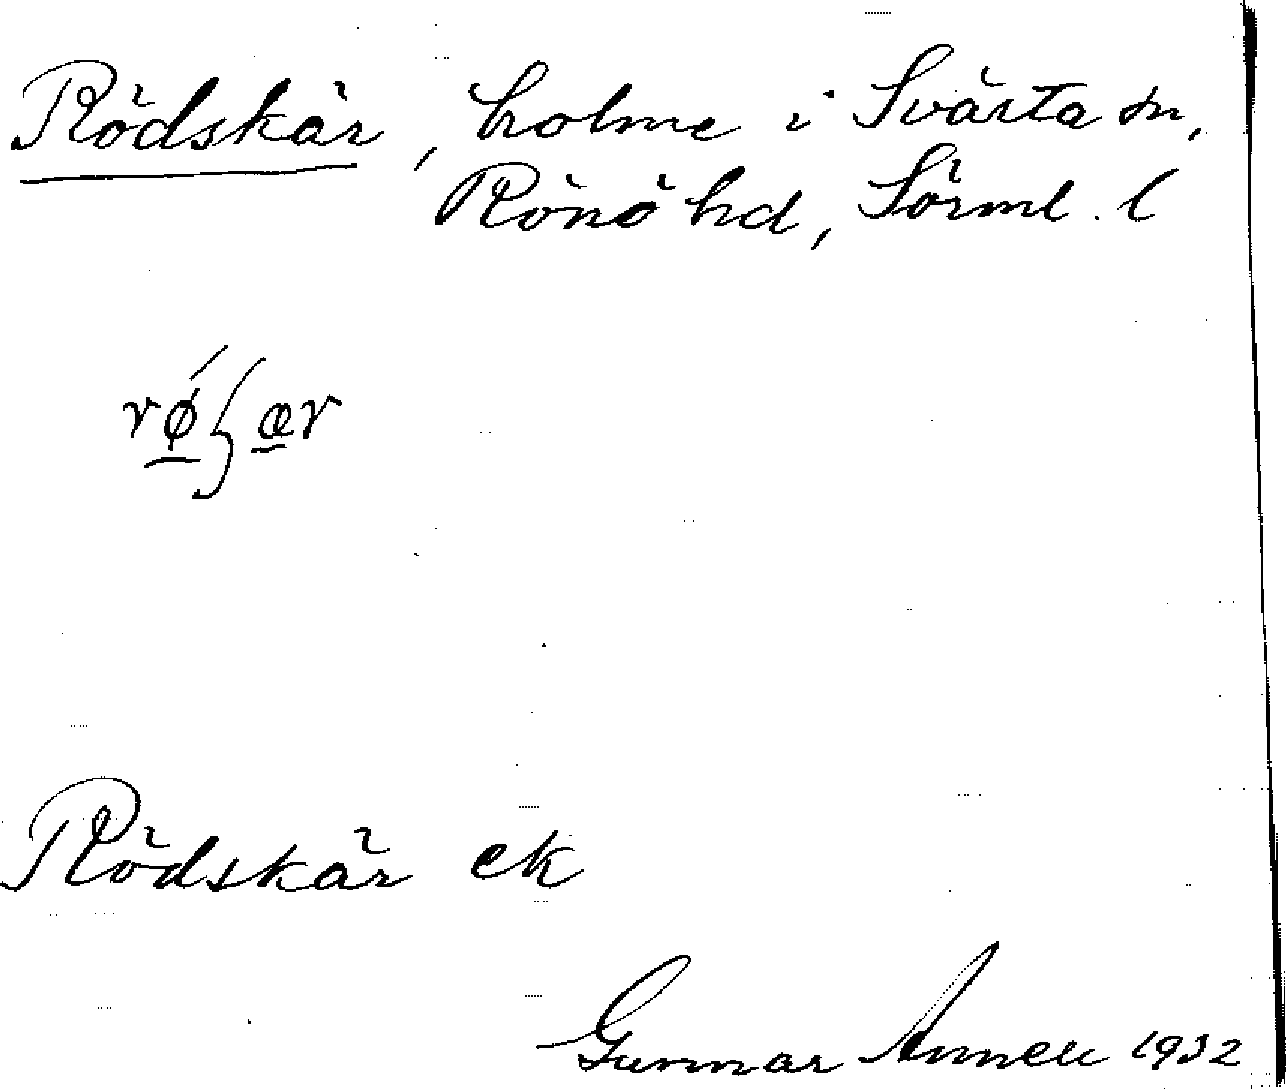 Rödskär, holme i Svärta sn,
Rönö hd, Sörml. l
rǿʃær
Rödskär ek
Gunnar Annell 1932